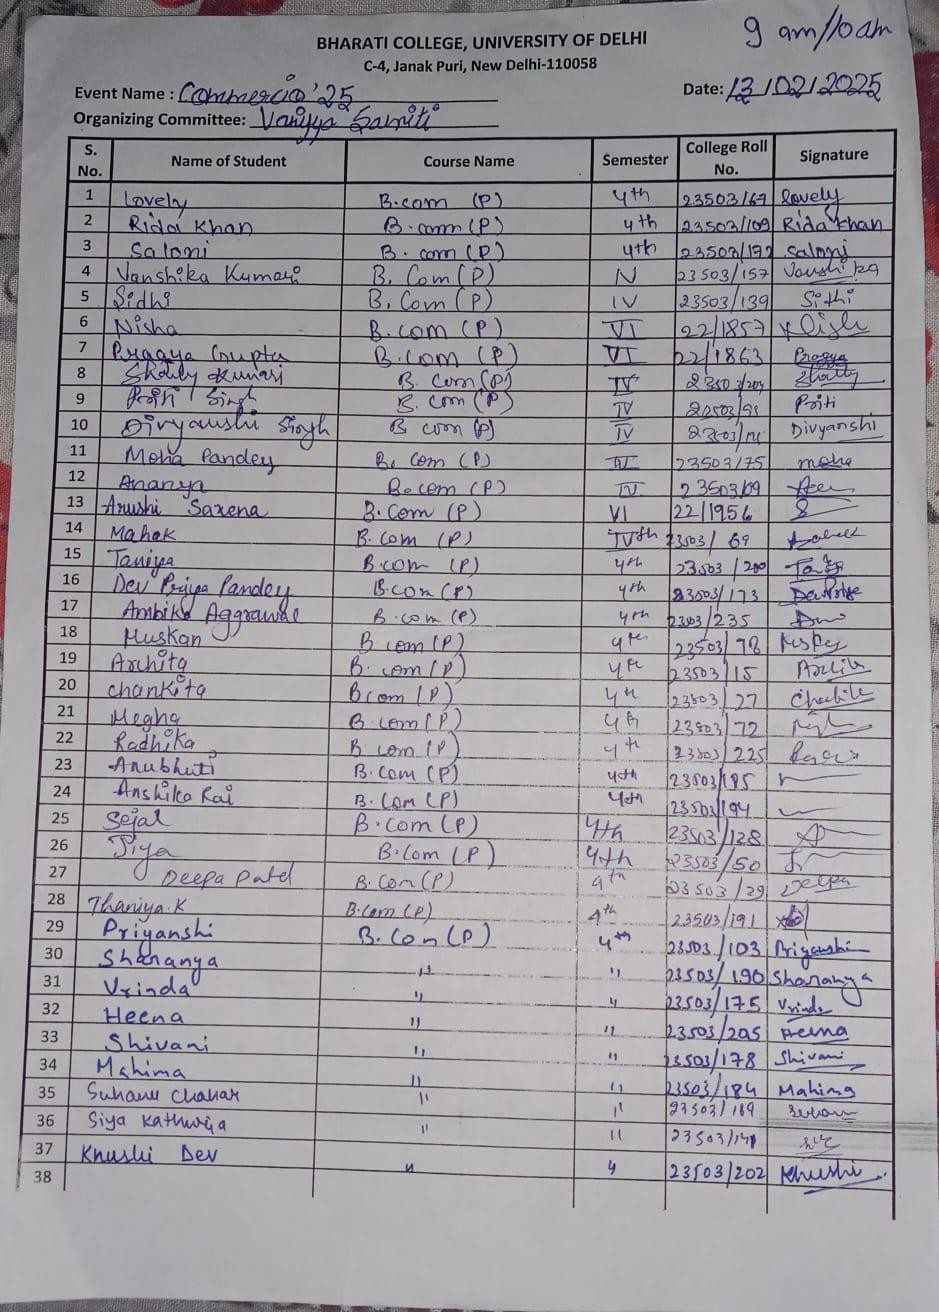 9 am/10am
BHARATI COLLEGE, UNIVERSITY OF DELHI
C-4, Janak Puri, New Delhi-110058
Event Name : Commercio'25 Date: 13/02/2025
Organizing Committee: Vanijya Samiti
S. No. Name of Student Course Name Semester College Roll No. Signature
1 Lovely B.com (P) 4th 23503/67 lovely
2 Rida Khan B.com (P) 4th 23503/109 Rida Khan
3 Saloni B.com (P) 4th Saloni
4 Vanshika Kumari B. Com (P) IV 23503/157 Vanshika
5 Sidhi B. Com (P) IV 23503/139 Sidhi
6 Nisha B.com (P) VI 22/1857
7 Pragya Gupta B.com (P) VI 22/1863 Pragya
8 Shally Kumari B. Com (P) IV 23503/209 Shally
9 Priti Singh B. com (P) IV Priti
10 Divyanshi Singh B com (P) IV Divyanshi
11 Moha Pandey B. Com (P) IV 23503/75 moha
12 Ananya B.com (P) IV
13 Arushi Saxena B.Com (P) VI 22/1956
14 Mahak B.com (P) IVth 23503/ 69
15 Taniya B.com (P) 4th 23503 /200
16 Dev Priya Pandey B.com (P) 4th 23503/173
17 Ambika Aggrawal B.com (P) 4th 2303/235
18 Muskan B com (P) 4th 23503/78
19 Archita B. com (P) 4th 23503/15
20 Chankita B com (P) 4th 23503/27
21 Megha B com (P) 4th 23503/72
22 Radhika B com (P) 4th 23503/225
23 Anubhuti B.Com (P) 4th 23503/185
24 Anshika Rai B.Com (P) 4th 23503/194
25 Sejal B.Com (P) 4th 23503/128
26 Jiya B.Com (P) 4th 23503/50
27 Deepa Patel B.Com (P) 4th 23503/29 Deepa
28 Thaniya.K B.Com (P) 4th 23503/191
29 Priyanshi B.Com (P) 4th 23503/103 Priyanshi
30 Sharanya " " 23503/190 Sharanya
31 Vrinda " " 23503/175 Vrinda
32 Heena " " 23503/205 Heena
33 Shivani " " 23503/178 Shivani
34 Mahima " " 23503/184 Mahima
35 Suhani Chahar " "
36 Siya Kathuria " "
37 Khushi Dev " " 23503/202 Khushi
38